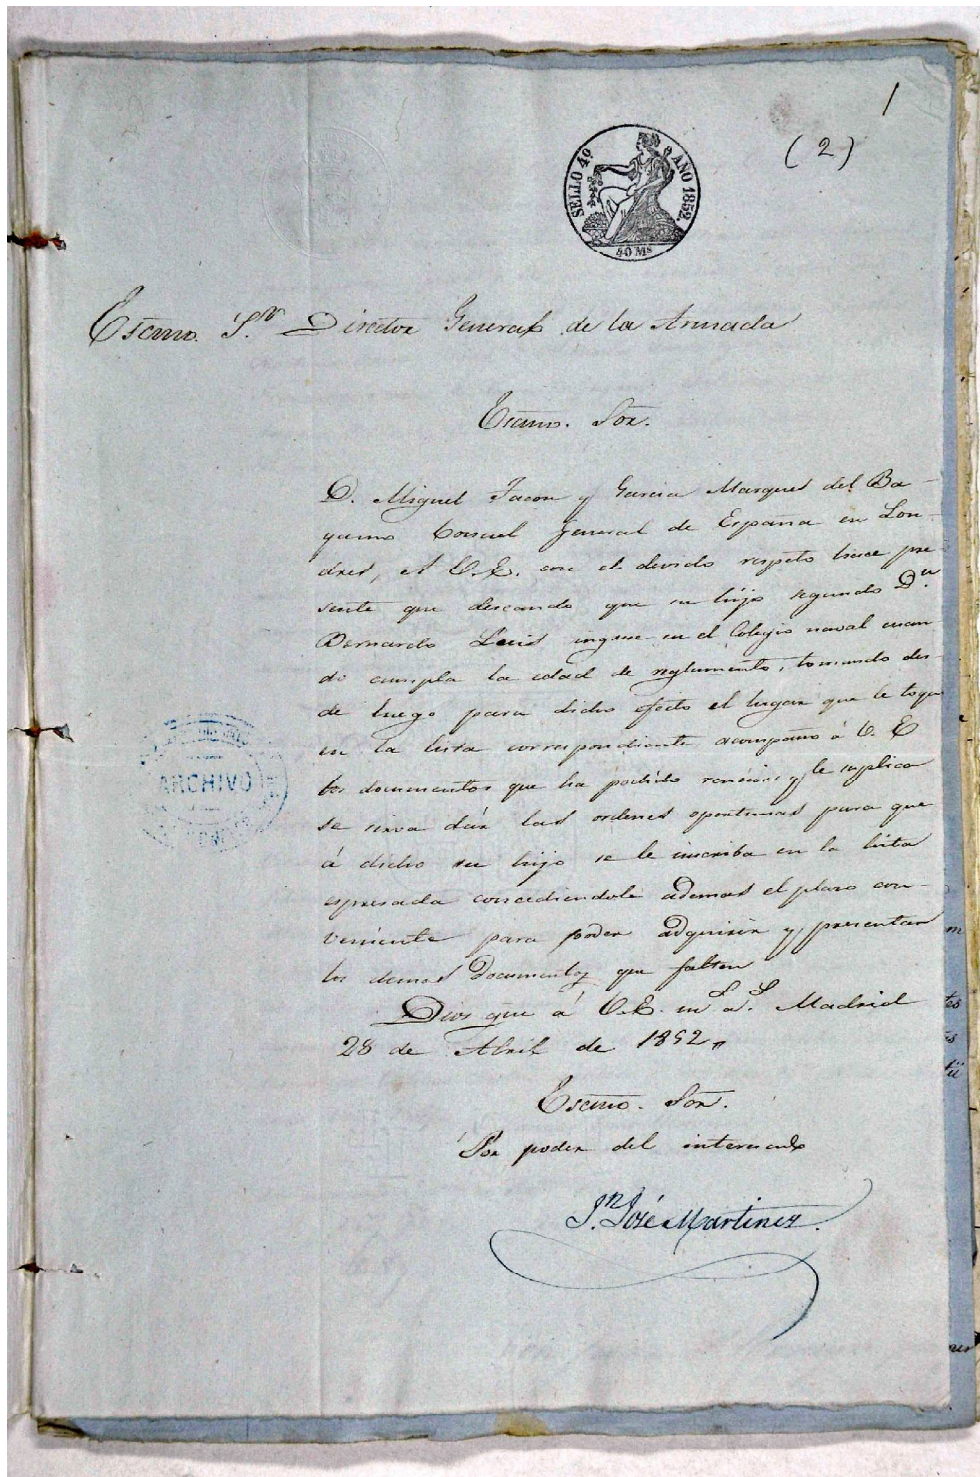 1
(2)
SELLO 4º AÑO 1852.
40 Ms
Escmo. S.or Director General de la Armada
Escmo. Sor.
D. Miguel Tacon y Garcia Marques del Ba-
yamo Consul General de España en Lon-
dres, á V.E. con el devido respeto hace pre-
sente que deseando que su hijo segundo D.n
Bernardo Luis ingrese en el Colegio naval cuan
do cumpla la edad de reglamento, tomando des-
de luego para dicho efecto el lugar que le toque
en la lista correspondiente acompaño á V. E
los documentos que ha podido reunir y le suplica
se sirva dár las ordenes oportunas para que
á dicho su hijo se le inscriba en la lista
espresada concediendole ademas el plazo con-
veniente para poder adquirir y presentar
los demas documentos que falten
Dios gue á V.E. m.s a.s Madrid
28 de Abril de 1852,,
Escmo. Sor.
Por poder del interesado
J.n José Martinez.
ARCHIVO